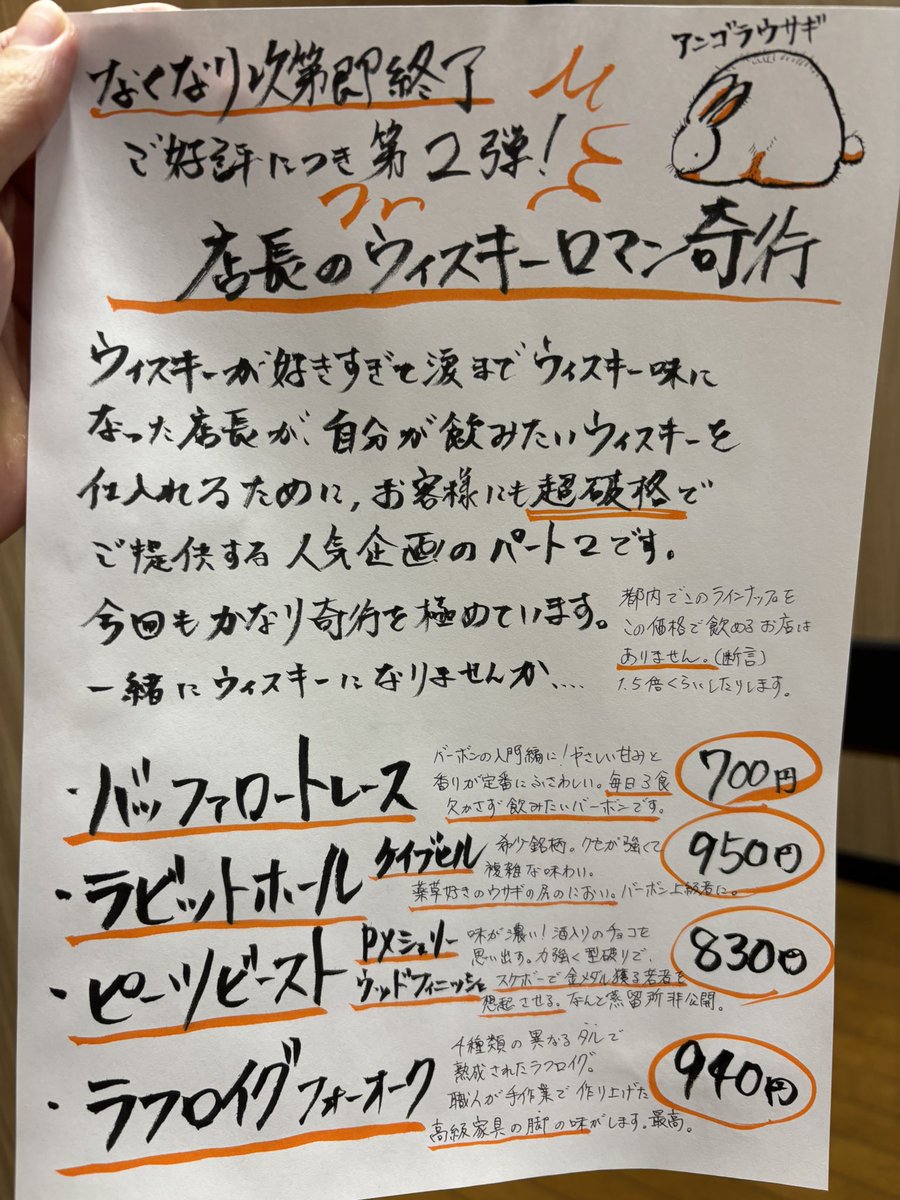 アンゴラウサギ
なくなり次第即終了
ご好評につき第2弾!
店長のウィスキーロマン奇行
ウィスキーが好きすぎて涙までウィスキー味に
なった店長が、自分が飲みたいウィスキーを
仕入れるために、お客様にも超破格で
ご提供する人気企画のパート2です。
今回もかなり奇行を極めています。
一緒にウィスキーになりませんか....
都内でこのラインナップを
この価格で飲めるお店は
ありません。(断言)
1.5倍くらいしたりします。
・バッファロートレース
バーボンの入門編に!やさしい甘みと
香りが定番にふさわしい。毎日3食
欠かさず飲みたいバーボンです。
700円
・ラビットホール ケイブヒル
希少銘柄。クセが強くて
複雑な味わい。
薬草好きのウサギの尻のにおい。バーボン上級者に。
950円
・ピーツビースト PXシェリー
ウッドフィニッシュ
味が濃い!酒入りのチョコを
思い出す。力強く型破りで、
スケボーで金メダル獲る若者を
想起させる。なんと蒸留所非公開。
830円
・ラフロイグフォーオーク
4種類の異なるダルで
熟成されたラフロイグ。
職人が手作業で作り上げた
高級家具の脚の味がします。最高。
940円